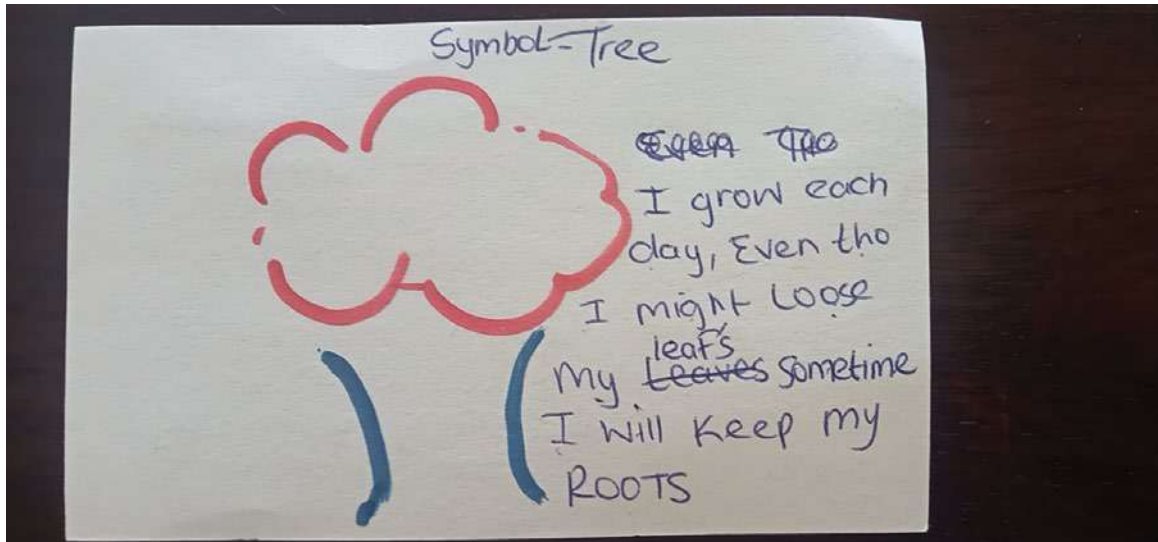 Symbol-Tree
I grow each
day, Even tho
I might Loose
leafs
my Leaves sometime
I will Keep my
ROOTS